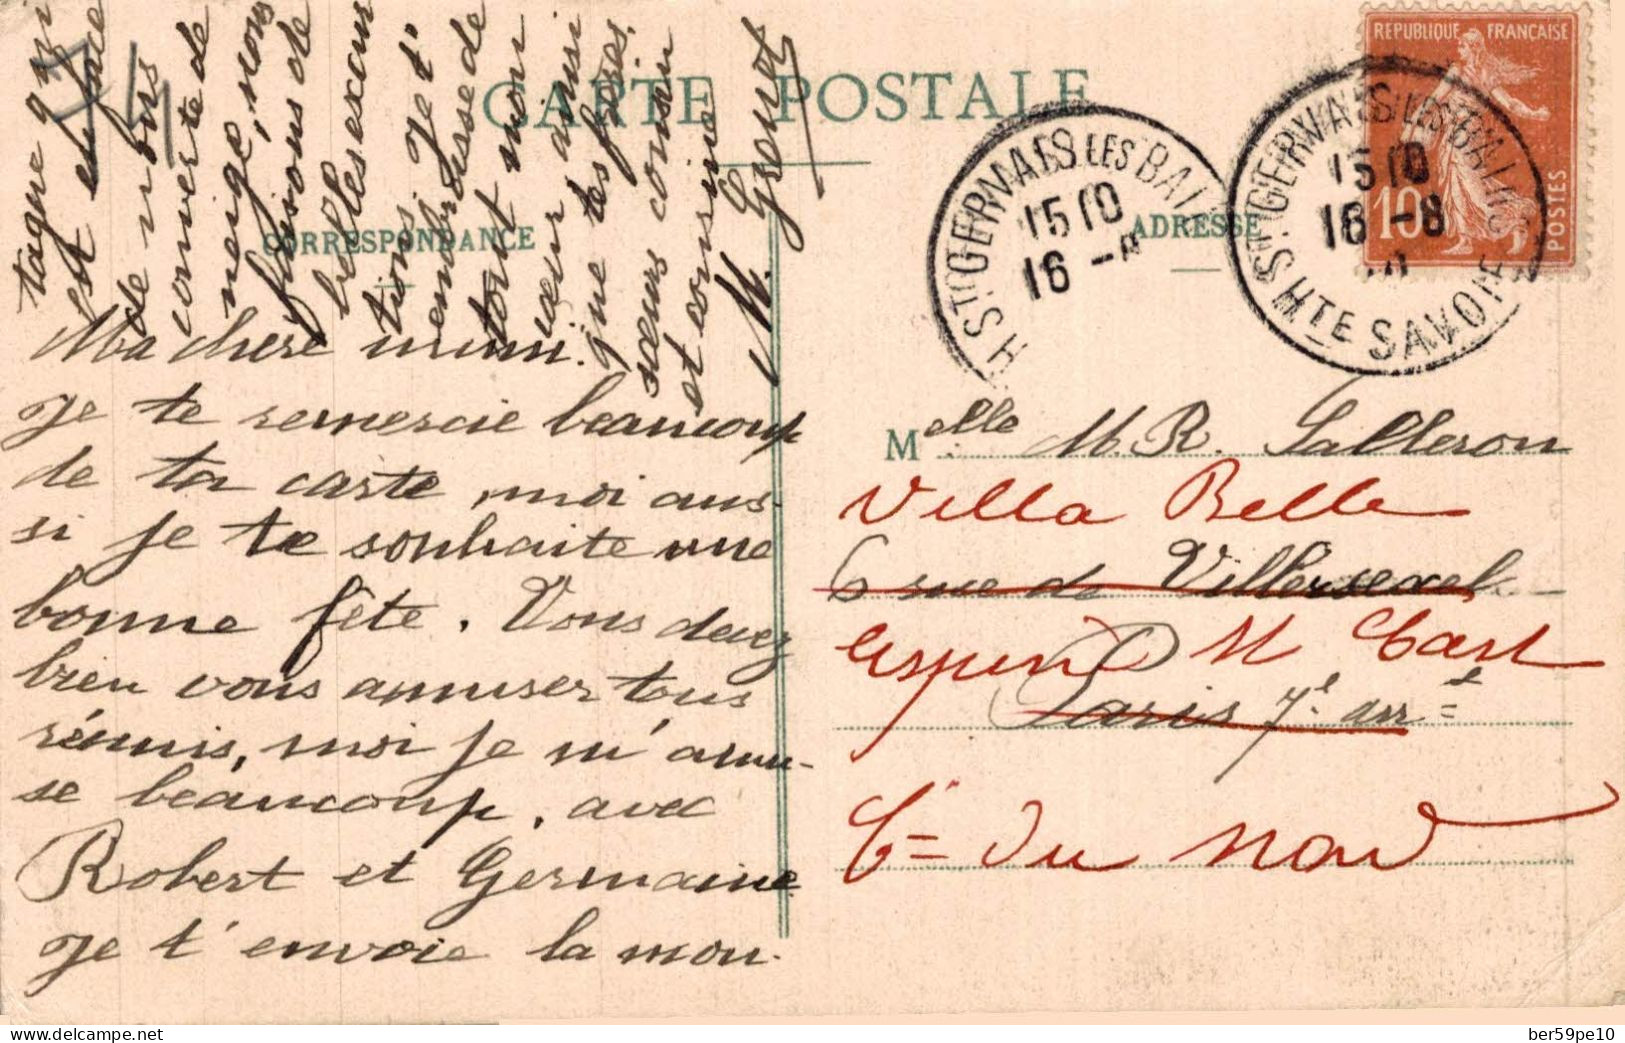 CARTE POSTALE
CORRESPONDANCE
ADRESSE
RÉPUBLIQUE FRANÇAISE
10
POSTES
ST GERVAIS LES BAI
15 10
16 -8
H
ST GERVAIS LES BAINS
15 10
16 -8
HTE SAVOIE
Ma chère mimi.
Je te remercie beaucoup
de ta carte, moi aus-
si je te souhaite une
bonne fête. Vous devez
bien vous amuser tous
réunis, moi je m'amu-
se beaucoup, avec
Robert et Germaine
Je t'envoie la mon-
tagne qui
est en face
de nous
couverte de
neige, nous
faisons de
belles excur
tions, je t'
embrasse de
tout mon
cœur ainsi
que tes frères,
sœurs cousin
et cousine
M.
Melle M. R. Salleron
Villa Belle
6 rue de Villersexel
M
Paris 7e arrt
du Nord
delcampe.net
ber59pe10